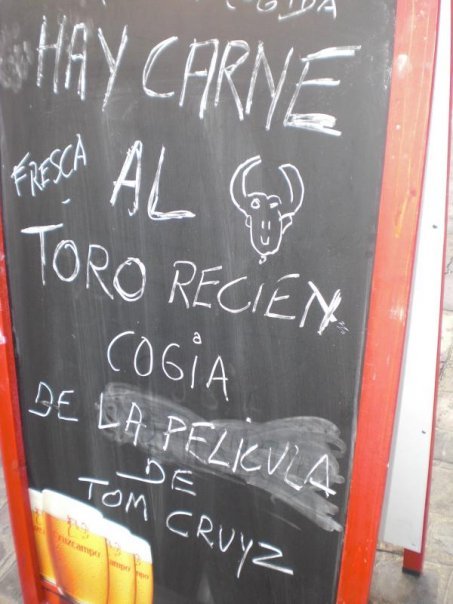 COGIDA
HAY CARNE
FRESCA AL
TORO RECIEN
COGIA
DE LA PELICULA
DE
TOM CRUYZ
cruzcampo